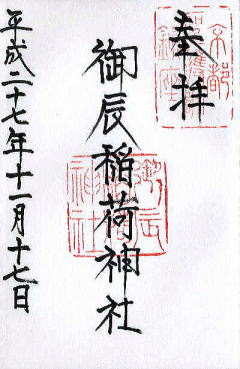 奉拝
御辰稲荷神社
平成二十七年十一月十七日